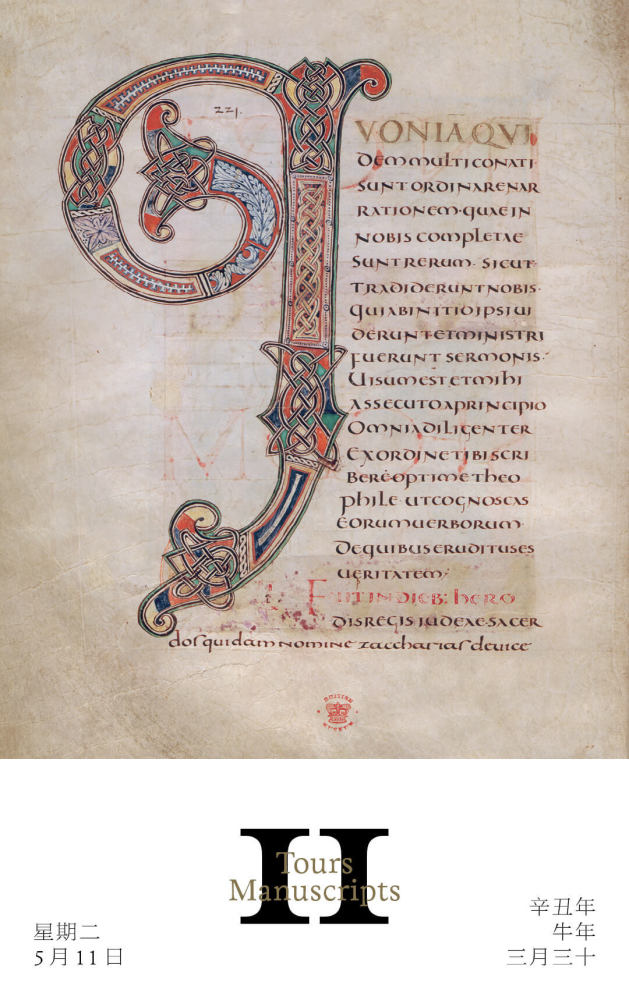 221.
QVONIAQVI
DEMMULTICONATI
SUNTORDINARENAR
RATIONEM·QUAEIN
NOBIS COMPLETAE
SUNTRERUM· SICUT
TRADIDERUNTNOBIS·
QUIABINITIOIPSIUI
DERUNT·ETMINISTRI
FUERUNT SERMONIS·
UISUMESTETMIHI
ASSECUTOAPRINCIPIO
OMNIADILIGENTER
EXORDINETIBISCRI
BEREOPTIMETHEO
PHILE·UTCOGNOSCAS
EORUMUERBORUM·
DEQUIBUSERUDITUSES
UERITATEM·
FUITINDIEB: HERO
DISREGISIUDEAESACER
dosquidamnomine zacchariasdeuice
BRITISH MUSEUM
II
Tours
Manuscripts
星期二
5月11日
辛丑年
牛年
三月三十